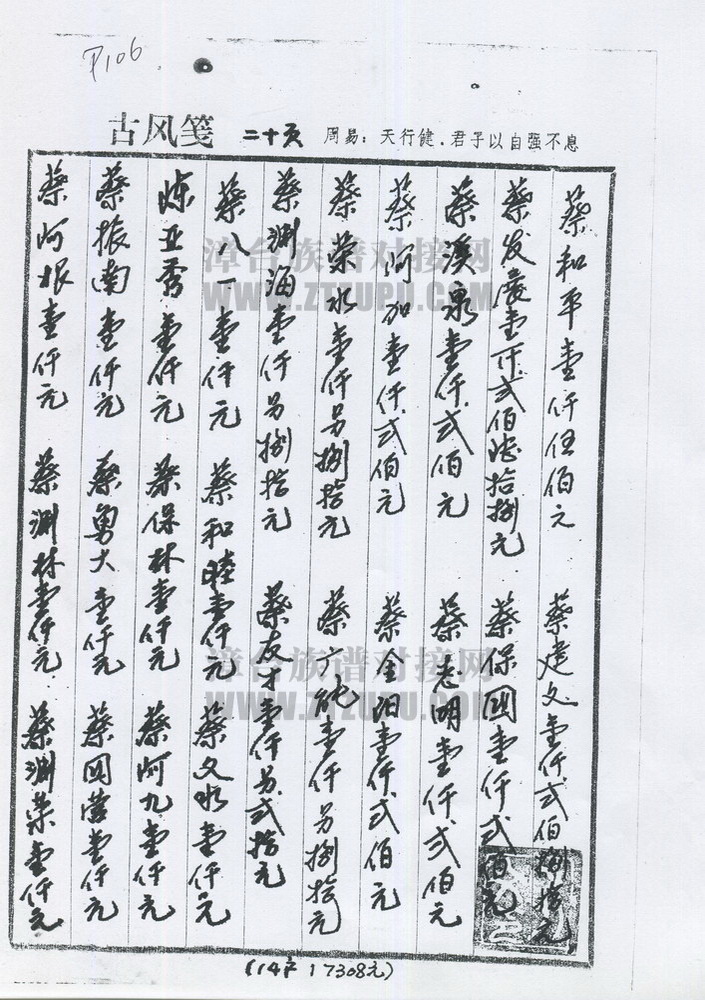 P106
古风笺 二十页 周易：天行健．君子以自强不息
蔡和平壹仟伍伯元 蔡建文壹仟弍伯捌拾元
蔡发展壹仟弍伯陆拾捌元 蔡保国壹仟弍伯元
蔡溪泉壹仟弍伯元 蔡志明壹仟弍伯元
蔡阿加壹仟弍伯元 蔡金汨壹仟弍伯元
蔡荣水壹仟另捌拾元 蔡六能壹仟另捌拾元
蔡渊海壹仟另捌拾元 蔡友才壹仟另弍拾元
蔡八一壹仟元 蔡和睦壹仟元 蔡文水壹仟元
陈亚香壹仟元 蔡保林壹仟元 蔡阿九壹仟元
蔡振南壹仟元 蔡勇大壹仟元 蔡国荣壹仟元
蔡阿根壹仟元 蔡渊林壹仟元 蔡渊荣壹仟元
(14户 17308元)
漳台族谱对接网
WWW.ZTZUPU.COM
漳台族谱对接网
WWW.ZTZUPU.COM